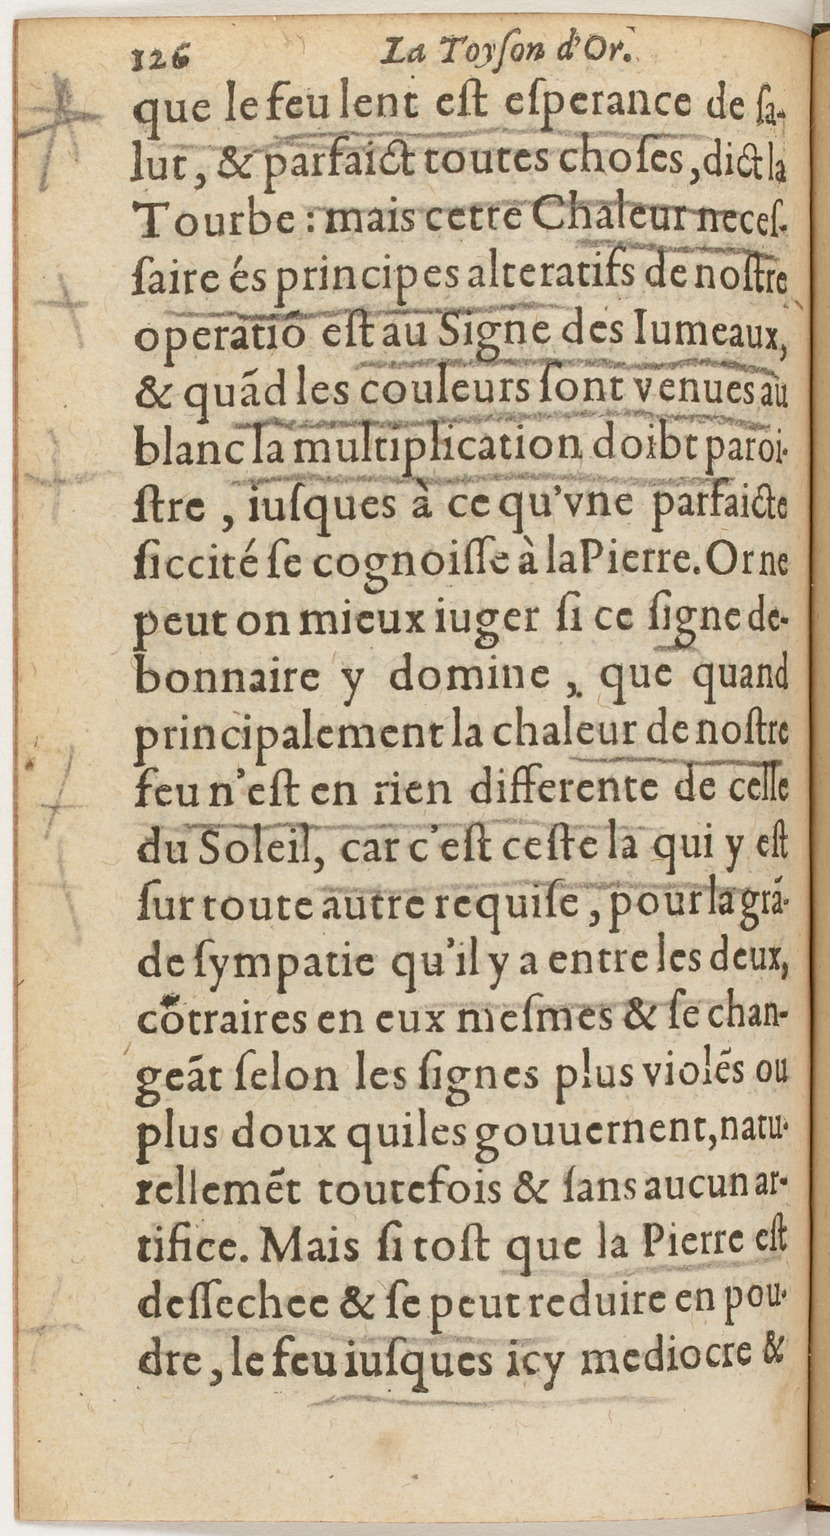 126 La Toyſon d'Or.
que le feu lent eſt eſperance de ſa-
lut, & parfaict toutes choſes, dict la
Tourbe : mais cette Chaleur neceſ-
ſaire és principes alteratifs de noſtre
operatiõ eſt au Signe des Iumeaux,
& quãd les couleurs ſont venues au
blanc la multiplication doibt paroi-
ſtre , iuſques à ce qu'vne parfaicte
ſiccité ſe cognoiſſe à la Pierre. Or ne
peut on mieux iuger ſi ce ſigne de-
bonnaire y domine , que quand
principalement la chaleur de noſtre
feu n'eſt en rien differente de celle
du Soleil, car c'eſt ceſte la qui y eſt
ſur toute autre requiſe , pour la grã-
de ſympatie qu'il y a entre les deux,
cõtraires en eux meſmes & ſe chan-
geãt ſelon les ſignes plus violẽs ou
plus doux qui les gouuernent, natu-
rellemẽt toutefois & ſans aucun ar-
tifice. Mais ſi toſt que la Pierre eſt
deſſechee & ſe peut reduire en pou-
dre, le feu iuſques icy mediocre &